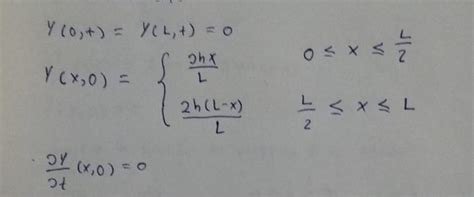 Y(0,t) = Y(L,t) = 0
Y(x,0) = { 2hx/L 0 ≤ x ≤ L/2
2h(L-x)/L L/2 ≤ x ≤ L
∂Y/∂t (x,0) = 0